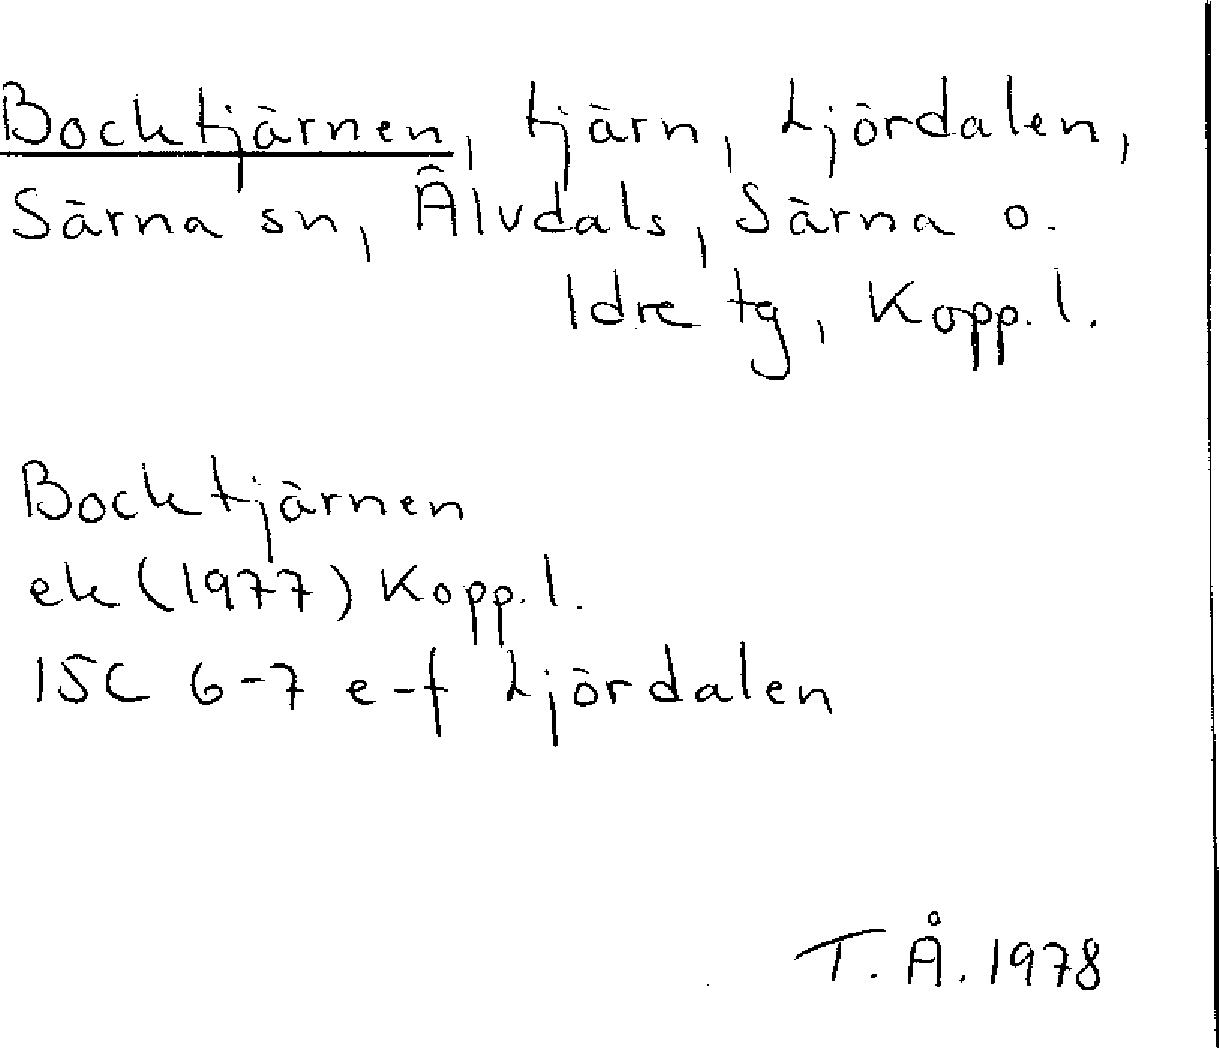 Bocktjärnen, tjärn, Ljördalen,
Särna sn, Älvdals, Särna o.
Idre tg, Kopp. l.
Bocktjärnen
ek (1977) Kopp. l.
15C 6-7 e-f Ljördalen
T. Å. 1978